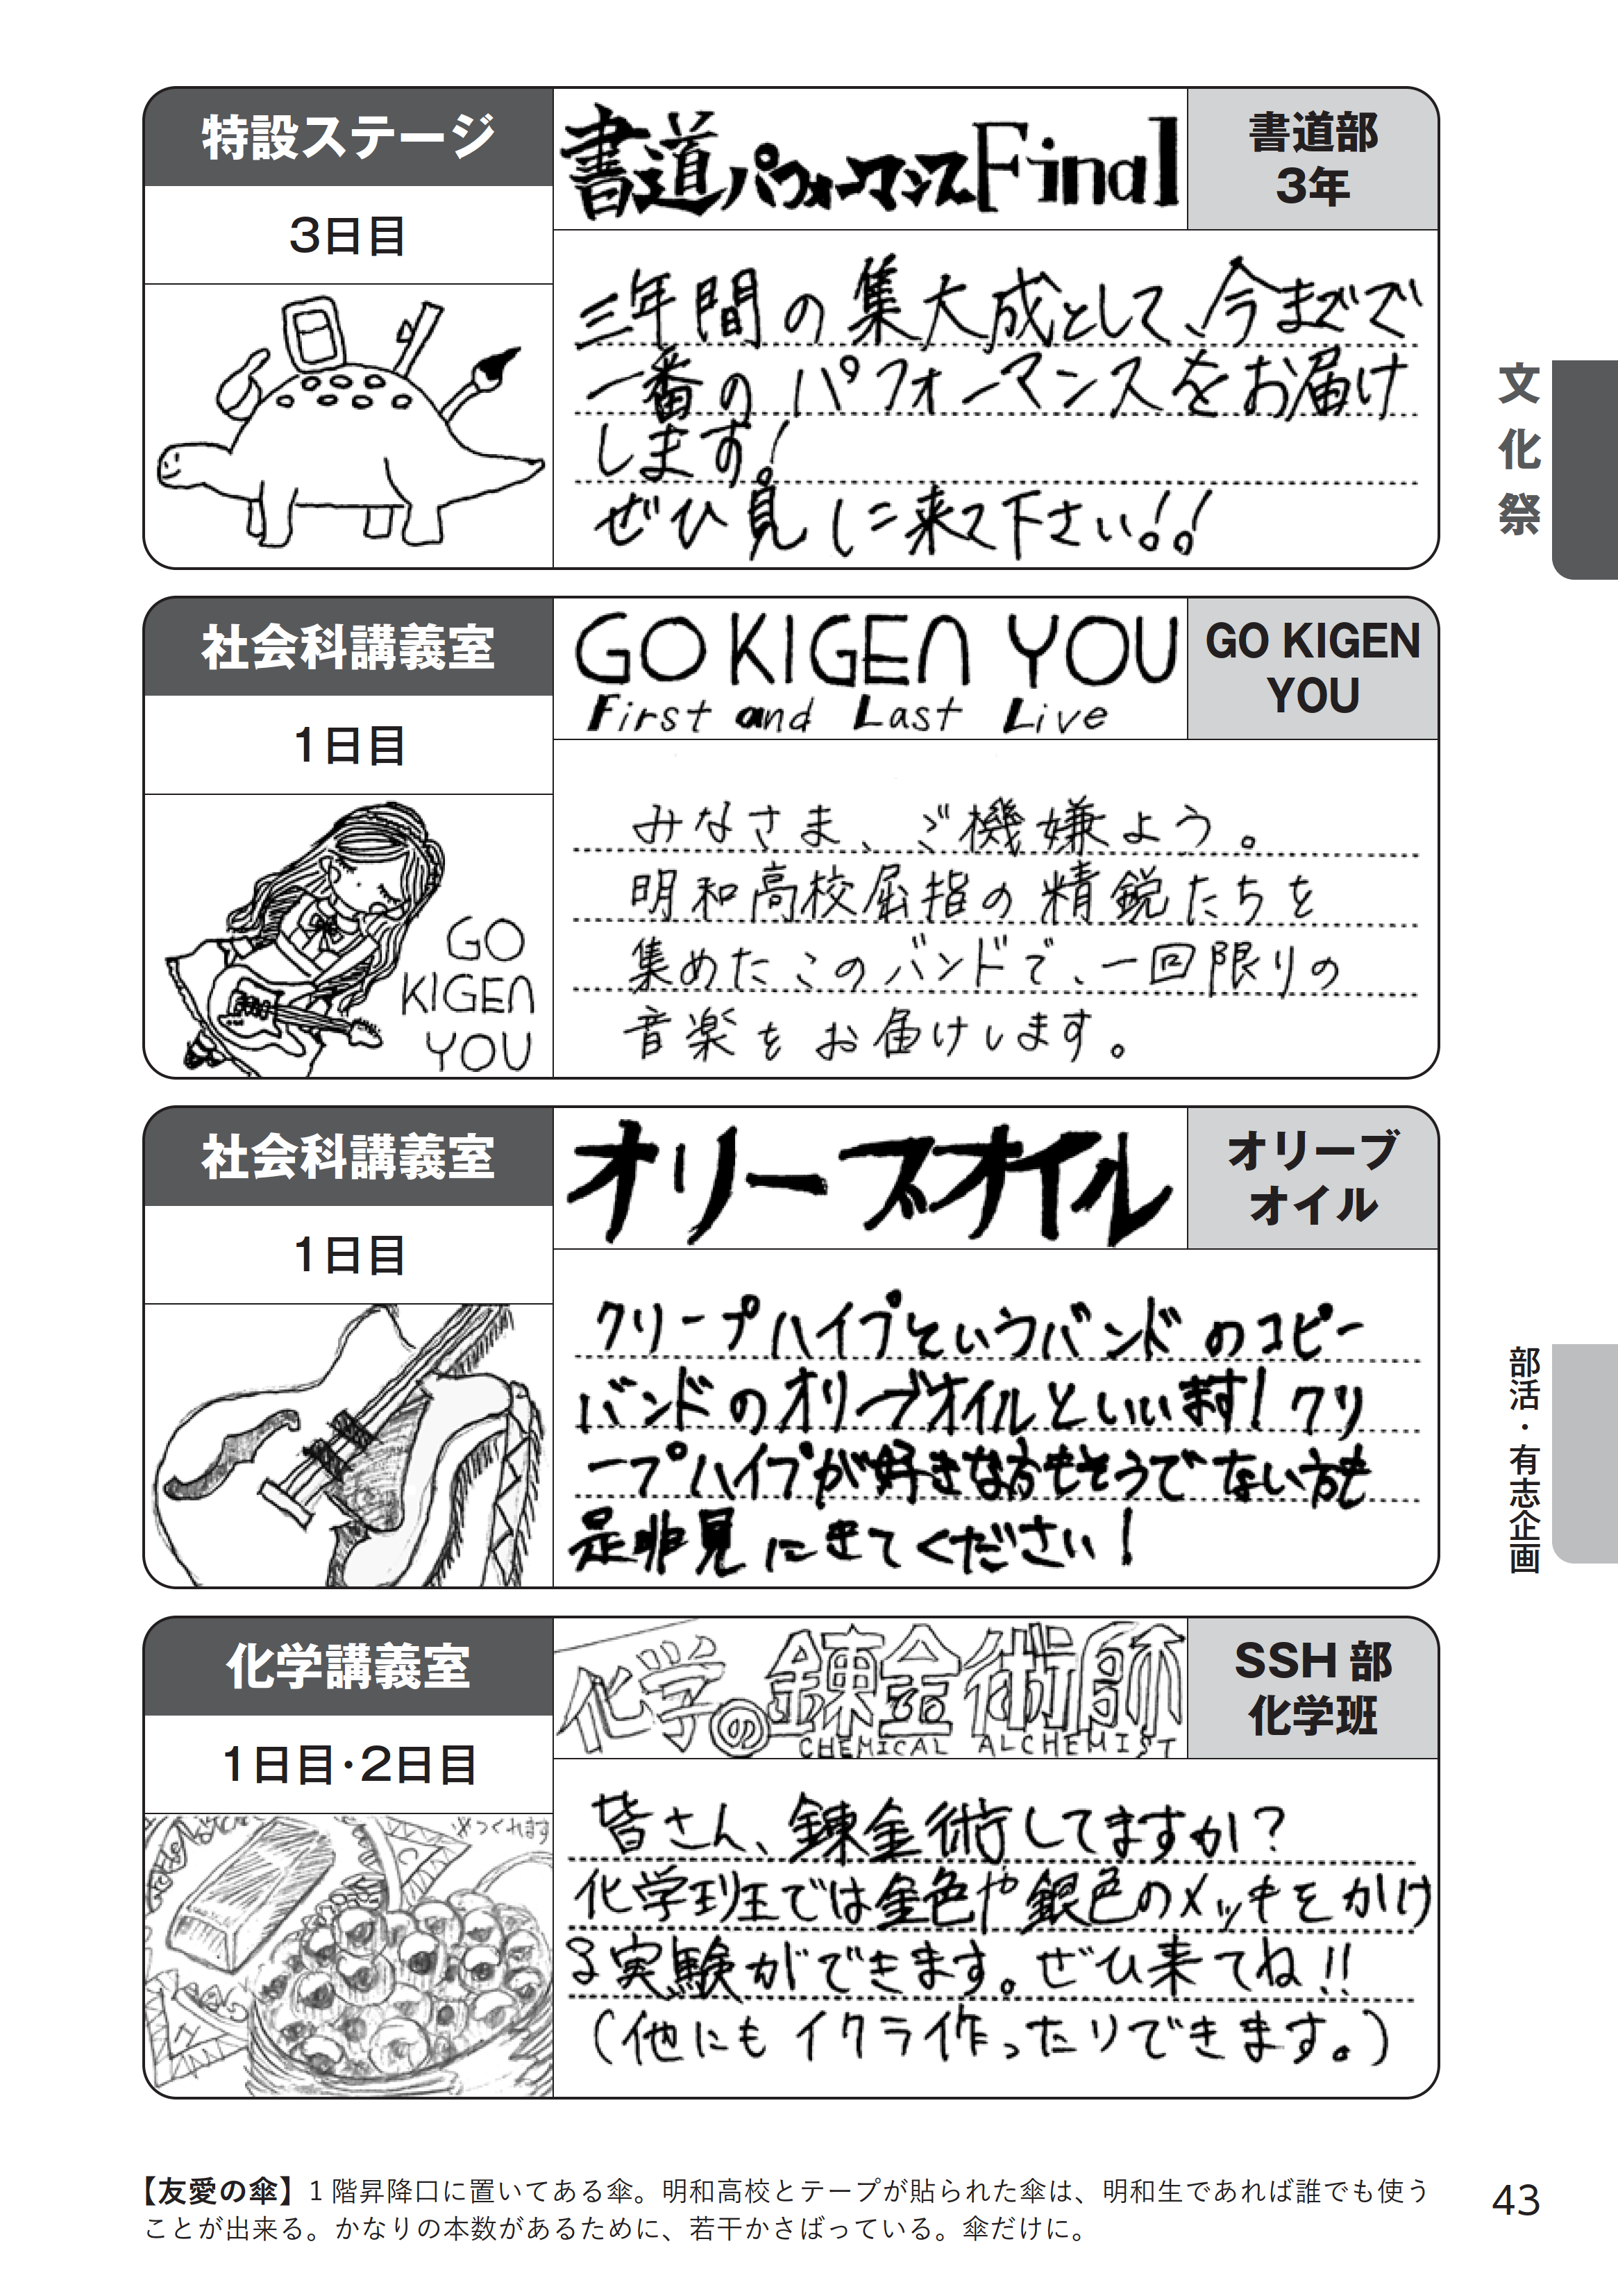 特設ステージ
書道パフォーマンスFinal
書道部
3年
3日目
三年間の集大成として、今までで
一番のパフォーマンスをお届け
します!
ぜひ見に来て下さい!!
社会科講義室
GO KIGEN YOU
First and Last Live
GO KIGEN
YOU
1日目
GO
KIGEN
YOU
みなさま、ご機嫌よう。
明和高校屈指の精鋭たちを
集めたこのバンドで、一回限りの
音楽をお届けします。
社会科講義室
オリーブオイル
オリーブ
オイル
1日目
クリープハイプというバンドのコピー
バンドのオリーブオイルといいます!クリ
ープハイプが好きな方もそうでない方も
是非見にきてください!
化学講義室
化学の錬金術師
CHEMICAL ALCHEMIST
SSH 部
化学班
1日目・2日目
※つくれます
皆さん、錬金術してますか?
化学班では金色や銀色のメッキをかけ
る実験ができます。ぜひ来てね!!
(他にもイクラ作ったりできます。)
文化祭
部活・有志企画
【友愛の傘】1階昇降口に置いてある傘。明和高校とテープが貼られた傘は、明和生であれば誰でも使う
ことが出来る。かなりの本数があるために、若干かさばっている。傘だけに。
43